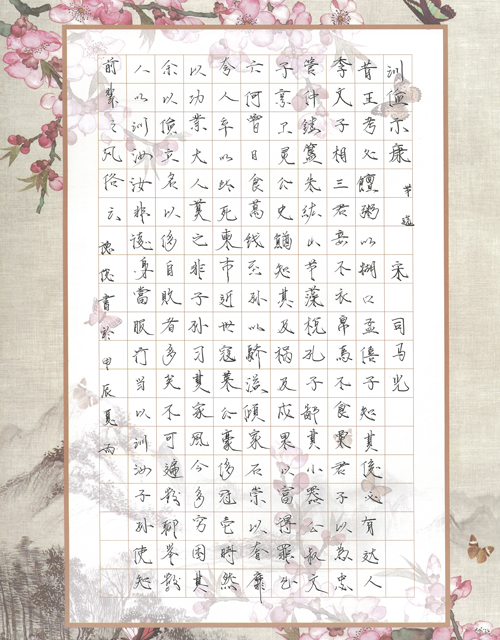 訓儉示康 节選 宋 司马光
昔正考父饘粥以糊口孟僖子知其後必有达人
季文子相三君妾不衣帛馬不食粟君子以為忠
管仲镂簋朱紘山节藻棁孔子鄙其小器公叔文
子享卫灵公史鰌知其及祸及戍果以富得罪出
亡何曾日食萬钱至孙以驕溢傾家石崇以奢靡
夸人卒以此死東市近世寇莱公豪侈冠一時然
以功業大人莫之非子孙习其家風今多穷困其
余以儉立名以侈自敗者多矣不可遍数聊举数
人以训汝汝非徒身當服行当以训汝子孙使知
前輩之风俗云 書於甲辰夏雨